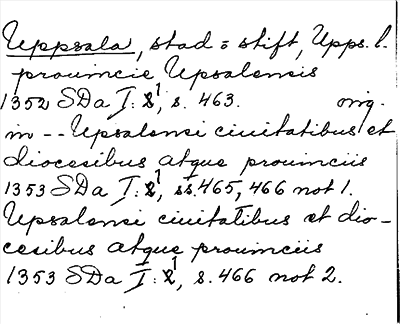 Uppsala, stad o stift, Upps. l.
prouincie Upsalensis
1352 SDa I: 1, s. 463. orig.
in -- Upsalensi ciuitatibus et
diocesibus atque prouinciis
1353 SDa I: 1, ss. 465, 466 not 1.
Upsalensi ciuitatibus et dio-
cesibus atque prouinciis
1353 SDa I: 1, s. 466 not 2.